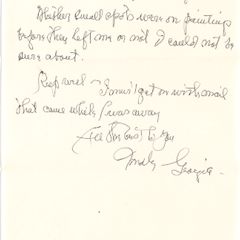 Whether small spots were on painting
before they left me or not I could not be
sure about.
Keep well - I must get on with mail
that came while I was away
All the best to you
Fondly Georgia -